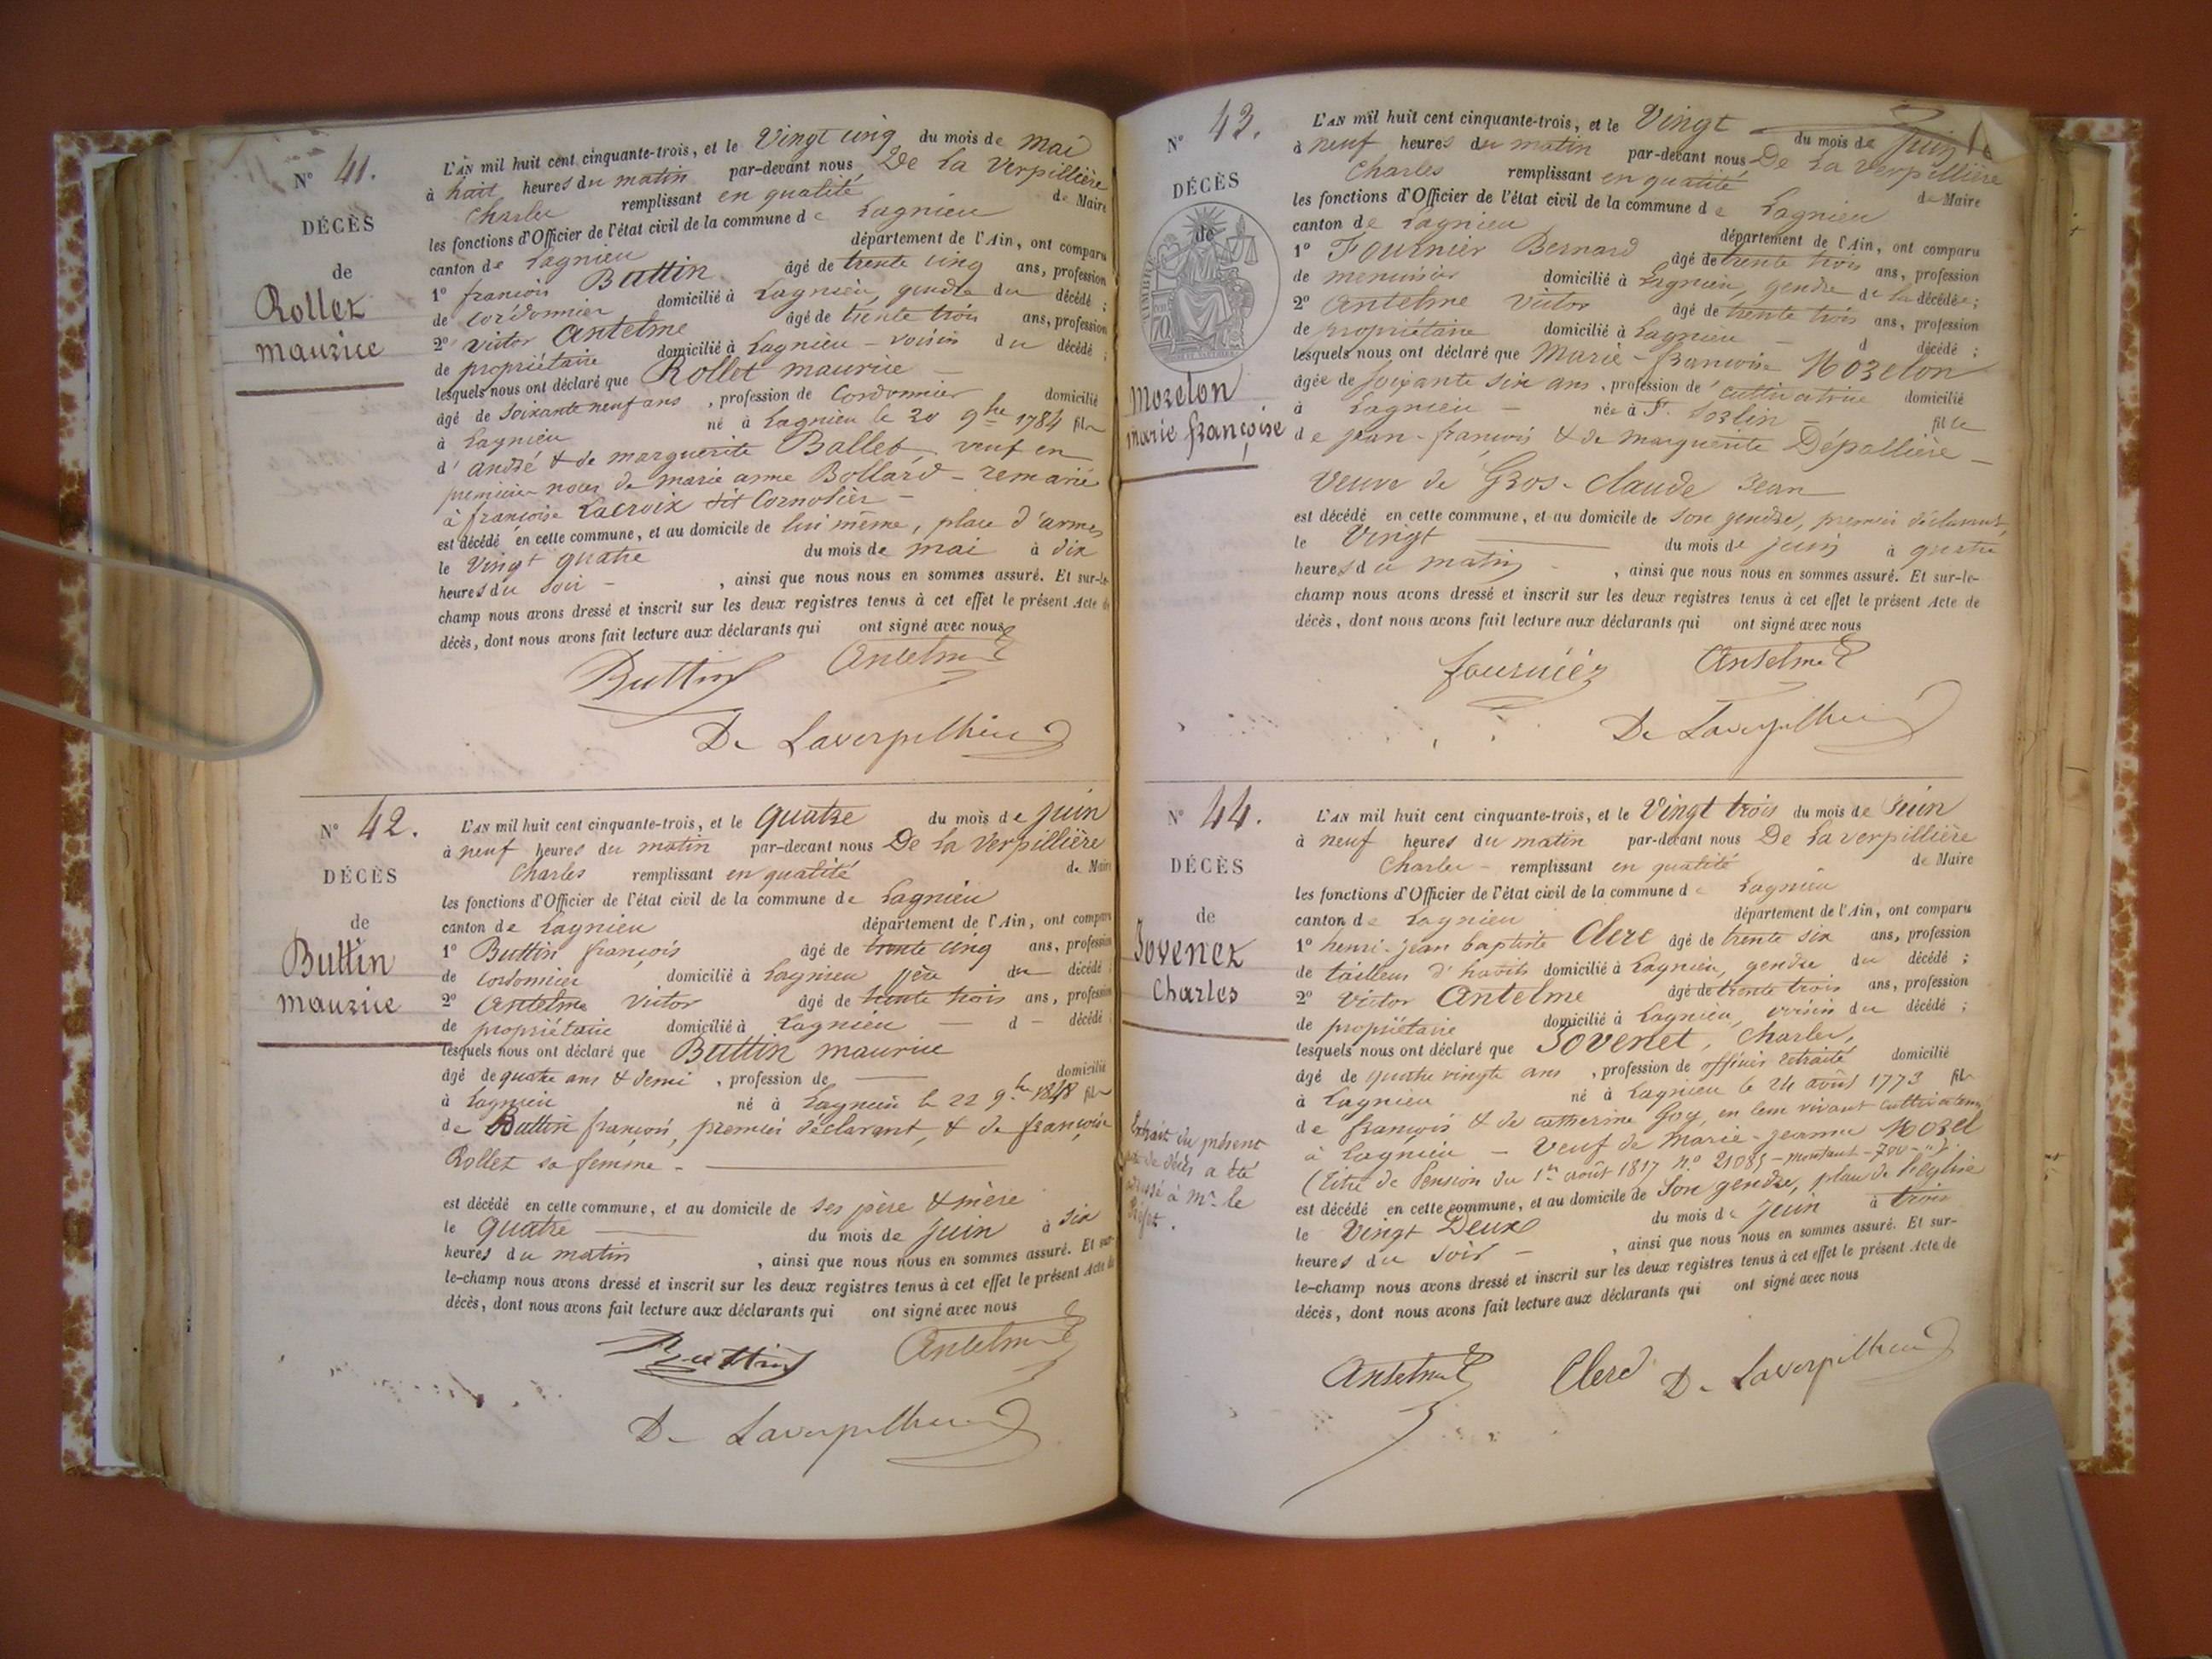 N° 41.
DÉCÈS
de
Rollet
maurice
L'AN mil huit cent cinquante-trois, et le Vingt cinq du mois de mai
à huit heures du matin par-devant nous De La Verpillière
Charles remplissant en qualité de Maire
les fonctions d'Officier de l'état civil de la commune de Lagnieu
canton de Lagnieu département de l'Ain, ont comparu
1° françois Buttin âgé de trente cinq ans, profession
de cordonnier domicilié à Lagnieu, gendre du décédé ;
2° victor Antelme âgé de trente trois ans, profession
de propriétaire domicilié à Lagnieu - voisin du décédé ;
lesquels nous ont déclaré que Rollet maurice -
âgé de soixante neuf ans, profession de cordonnier domicilié
à Lagnieu né à Lagnieu le 20 9bre 1784 fils
d'andré & de marguerite Ballet, veuf en
premières noces de marie anne Bollard - remarié
à françoise Lacroix dit Cornolier -
est décédé en cette commune, et au domicile de lui même, place d'armes
le Vingt quatre du mois de mai à dix
heures du soir - , ainsi que nous nous en sommes assuré. Et sur-le-
champ nous avons dressé et inscrit sur les deux registres tenus à cet effet le présent Acte de
décès, dont nous avons fait lecture aux déclarants qui ont signé avec nous
Buttin Antelme
De Laverpillière
N° 42.
DÉCÈS
de
Buttin
maurice
L'AN mil huit cent cinquante-trois, et le quatre du mois de juin
à neuf heures du matin par-devant nous De La Verpillière
Charles remplissant en qualité de Maire
les fonctions d'Officier de l'état civil de la commune de Lagnieu
canton de Lagnieu département de l'Ain, ont comparu
1° Buttin françois âgé de trente cinq ans, profession
de cordonnier domicilié à Lagnieu père du décédé
2° Antelme Victor âgé de trente trois ans, profession
de propriétaire domicilié à Lagnieu - d - décédé
lesquels nous ont déclaré que Buttin maurice
âgé de quatre ans & demi, profession de domicilié
à Lagnieu né à Lagnieu le 22 9bre 1848 fils
de Buttin françois, premier déclarant, & de françoise
Rollet sa femme -
est décédé en cette commune, et au domicile de ses père & mère
le quatre du mois de juin à six
heures du matin , ainsi que nous nous en sommes assuré. Et sur-
le-champ nous avons dressé et inscrit sur les deux registres tenus à cet effet le présent Acte de
décès, dont nous avons fait lecture aux déclarants qui ont signé avec nous
Buttin Antelme
De Laverpillière
N° 43.
DÉCÈS
de
70
Morelon
marie françoise
L'AN mil huit cent cinquante-trois, et le Vingt du mois de juin
à neuf heures du matin par-devant nous De La Verpillière
Charles remplissant en qualité de Maire
les fonctions d'Officier de l'état civil de la commune de Lagnieu
canton de Lagnieu département de l'Ain, ont comparu
1° Fournier Bernard âgé de trente trois ans, profession
de menuisier domicilié à Lagnieu, gendre de la décédée ;
2° Antelme Victor âgé de trente trois ans, profession
de propriétaire domicilié à Lagnieu - d décédé ;
lesquels nous ont déclaré que Marie-françoise Morelon
âgée de soixante six ans, profession de cultivatrice domicilié
à Lagnieu - née à St. Sorlin - fille
de jean-françois & de marguerite Dépallière -
Veuve de Gros-Claude Jean
est décédé en cette commune, et au domicile de son gendre, premier déclarant,
le Vingt du mois de juin à quatre
heures du matin - , ainsi que nous nous en sommes assuré. Et sur-le-
champ nous avons dressé et inscrit sur les deux registres tenus à cet effet le présent Acte de
décès, dont nous avons fait lecture aux déclarants qui ont signé avec nous
fournier Antelme
De Laverpillière
N° 44.
DÉCÈS
de
Jovenet
Charles
Extrait du présent
acte de décès a été
adressé à Mr. le
Préfet.
L'AN mil huit cent cinquante-trois, et le Vingt trois du mois de Juin
à neuf heures du matin par-devant nous De La verpillière
Charles - remplissant en qualité de Maire
les fonctions d'Officier de l'état civil de la commune de Lagnieu
canton de Lagnieu département de l'Ain, ont comparu
1° henri-jean baptiste Clerc âgé de trente six ans, profession
de tailleur d'habits domicilié à Lagnieu, gendre du décédé ;
2° Victor Antelme âgé de trente trois ans, profession
de propriétaire domicilié à Lagnieu, voisin du décédé ;
lesquels nous ont déclaré que Jovenet, Charles,
âgé de quatre vingts ans, profession de officier retraité domicilié
à Lagnieu né à Lagnieu le 24 août 1773 fils
de françois & de catherine Goy, en leur vivant cultivateurs
à Lagnieu - Veuf de Marie-jeanne Morel
(Titre de Pension du 1er août 1817 N° 21085 - montant - 700 - ")
est décédé en cette commune, et au domicile de son gendre, place de l'église
le Vingt Deux du mois de juin à trois
heures du soir - , ainsi que nous nous en sommes assuré. Et sur-
le-champ nous avons dressé et inscrit sur les deux registres tenus à cet effet le présent Acte de
décès, dont nous avons fait lecture aux déclarants qui ont signé avec nous
Antelme Clerc De Laverpillière